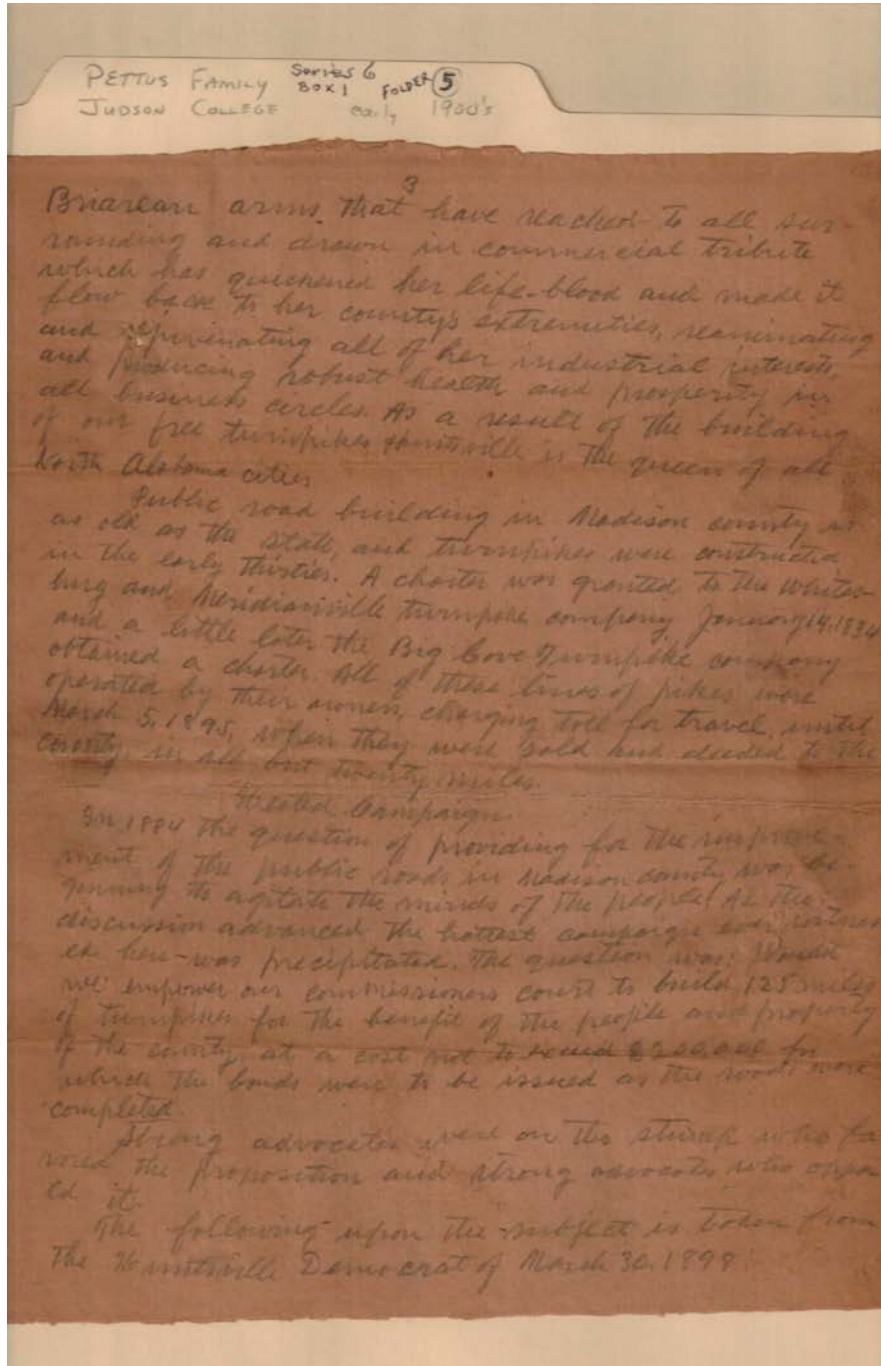 PETTUS FAMILY Series 6 BOX 1 FOLDER 5
JUDSON COLLEGE early 1900's
3
Briarean arms that have reached to all sur-
rounding and drawn in commercial tribute
which has quickened her life-blood and made it
flow back to her county's extremities, reanimating
and rejuvenating all of her industrial interests,
and producing robust health and prosperity in
all business circles. As a result of the building
of our free turnpikes Huntsville is the queen of all
North Alabama cities
Public road building in Madison county is
as old as the state, and turnpikes were constructed
in the early thirties. A charter was granted to the Whites-
burg and Meridianville turnpike company January 14, 1834
and a little later the Big Cove Turnpike company
obtained a charter. All of these lines of pikes were
operated by their owners, charging toll for travel, until
March 5, 1895, when they were sold and deeded to the
county, in all but twenty miles.
Heated Campaign.
In 1894 the question of providing for the improve-
ment of the public roads in Madison county was be-
ginning to agitate the minds of the people. As the
discussion advanced the hottest campaign ever witness
ed here-was precipitated. The question was: Would
we empower our commissioners court to build 125 miles
of turnpikes for the benefit of the people and property
of the county, at a cost not to exceed $200,000 for
which the bonds were to be issued as the roads were
completed.
Strong advocates were on the stump who fa
vored the proposition and strong advocates who oppos
ed it.
The following upon the subject is taken from
The Huntsville Democrat of March 30, 1898